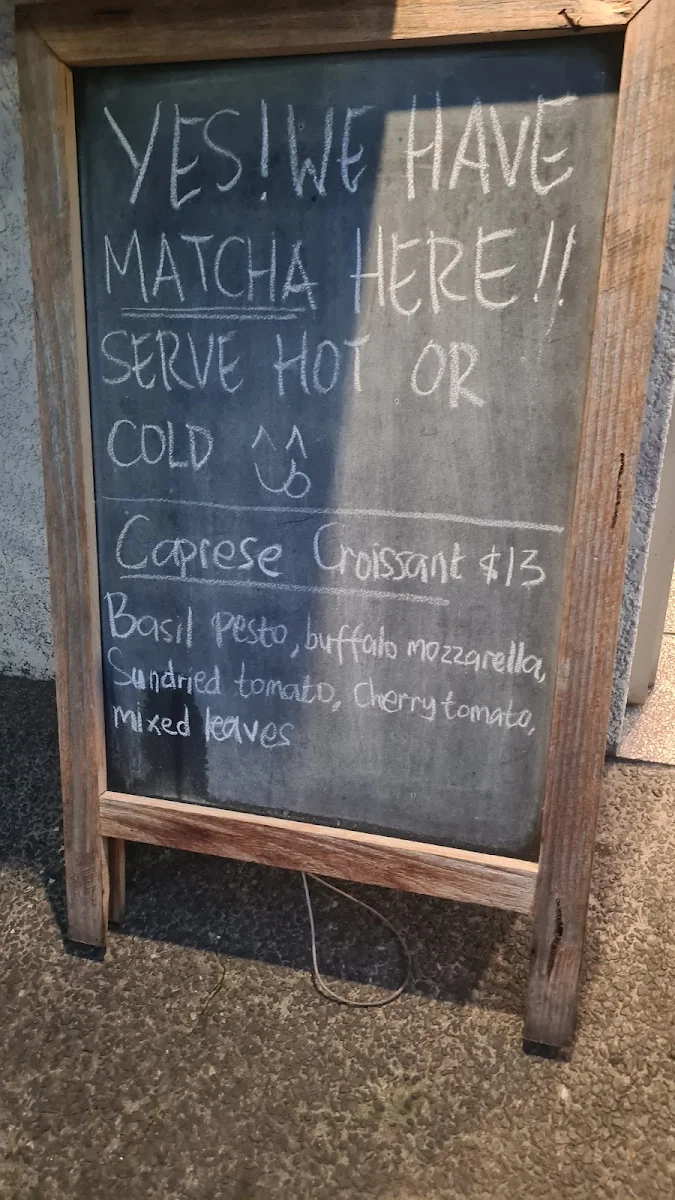 YES! WE HAVE
MATCHA HERE!!
SERVE HOT OR
COLD
Caprese Croissant $13
Basil pesto, buffalo mozzarella,
Sundried tomato, cherry tomato,
mixed leaves